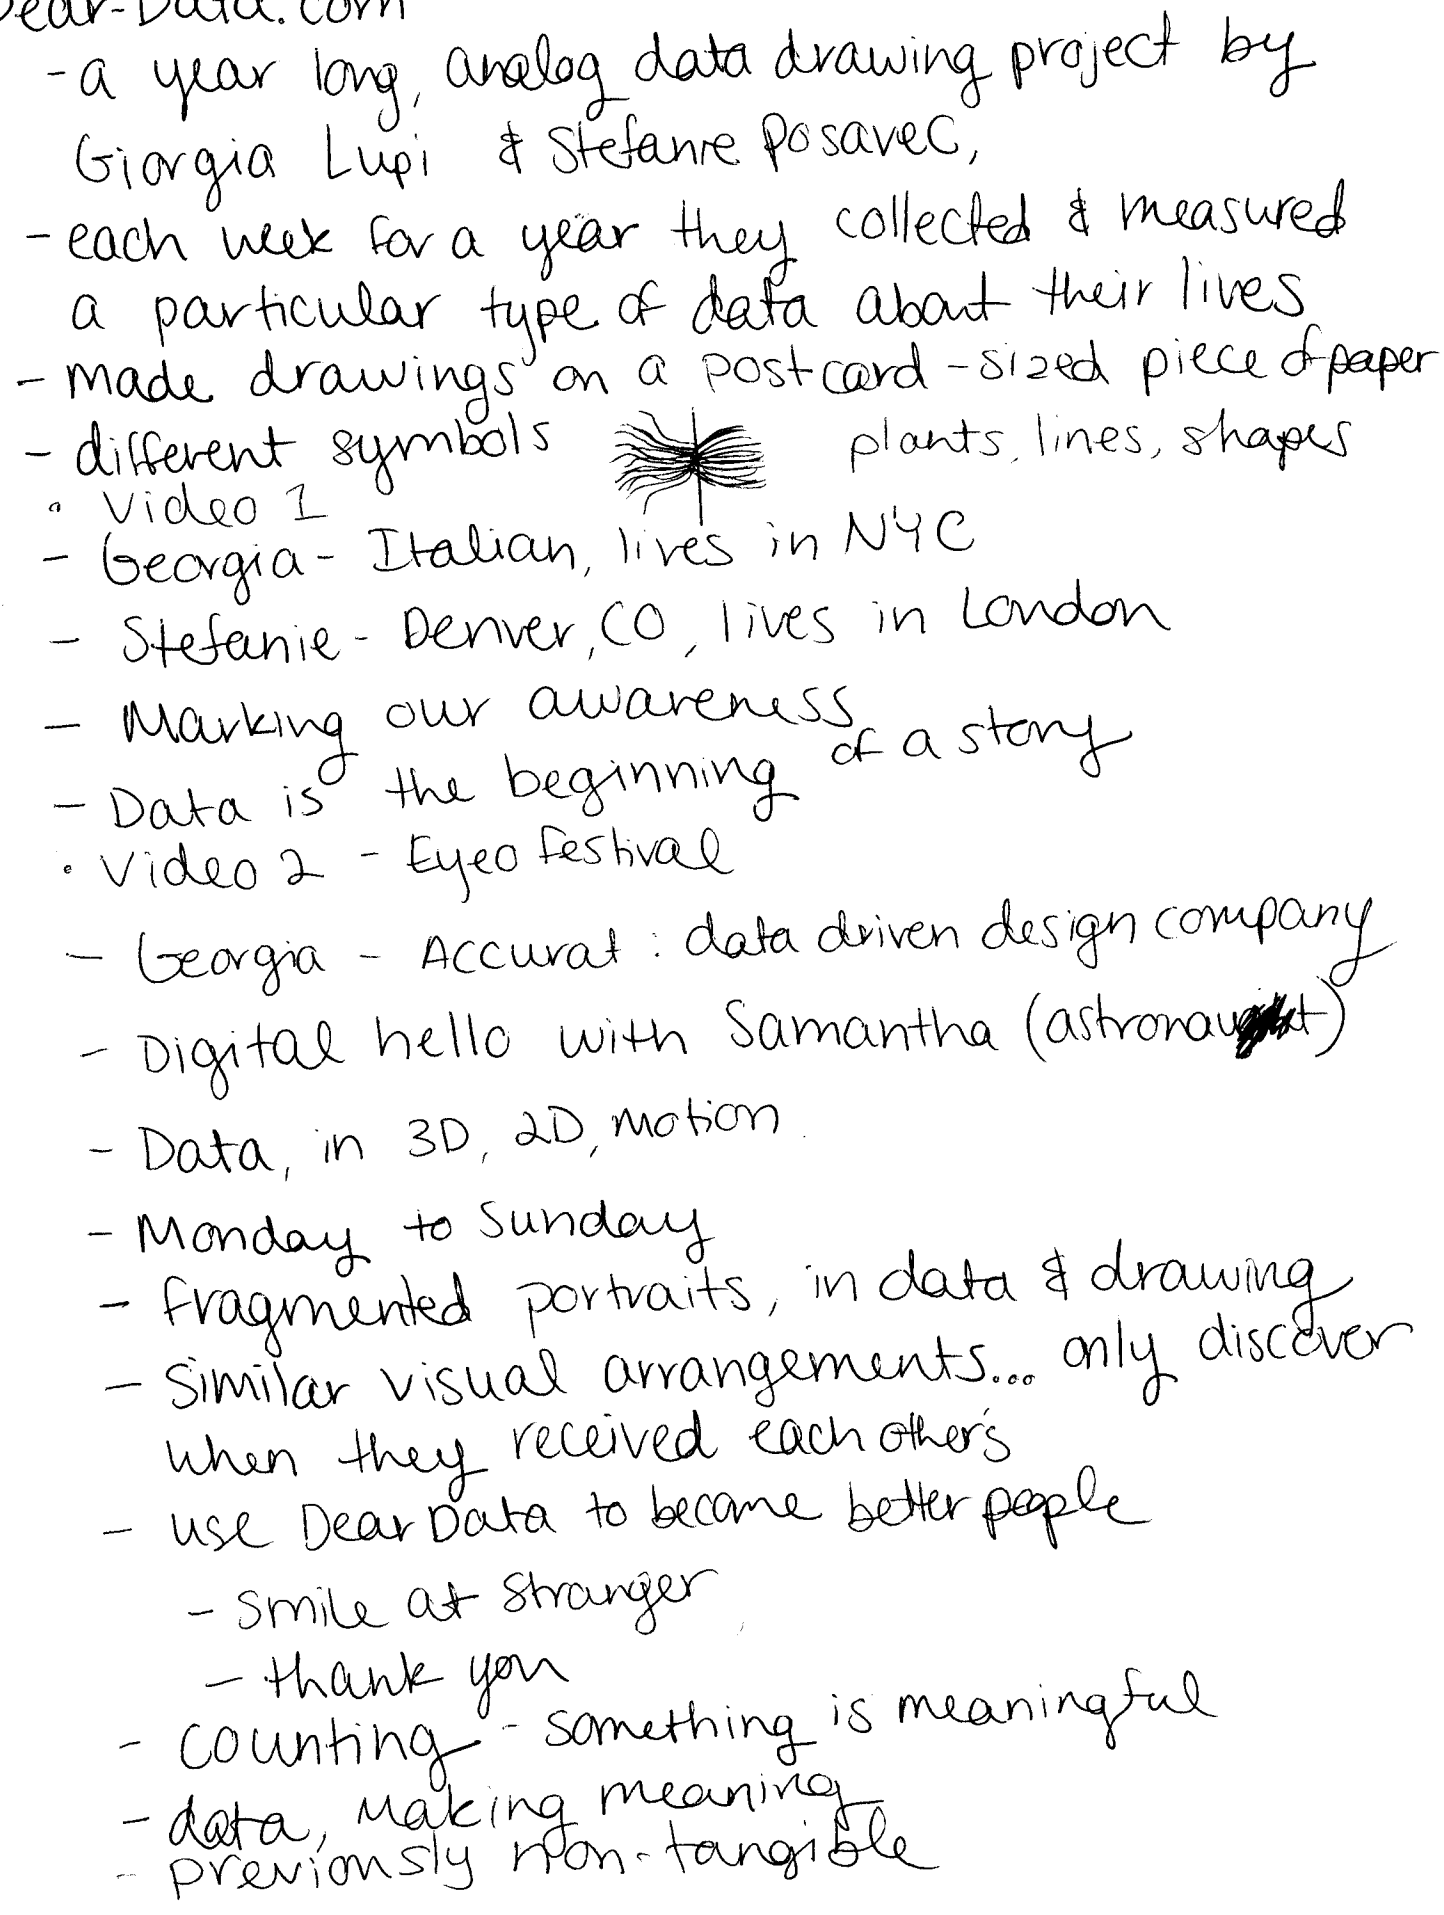 Dear-Data.com
- a year long, analog data drawing project by
Giorgia Lupi & Stefanie Posavec,
- each week for a year they collected & measured
a particular type of data about their lives
- made drawings on a postcard-sized piece of paper
- different symbols plants, lines, shapes
• Video 1
- Georgia - Italian, lives in NYC
- Stefanie - Denver, CO, lives in London
- Marking our awareness
- Data is the beginning of a story
• Video 2 - Eyeo festival
- Georgia - Accurat : data driven design company
- Digital hello with Samantha (astronaut)
- Data, in 3D, 2D, motion
- Monday to Sunday
- fragmented portraits, in data & drawing
- Similar visual arrangements... only discover
when they received each other's
- use Dear Data to become better people
- smile at stranger
- thank you
- counting - something is meaningful
- data, making meaning
- previously non-tangible